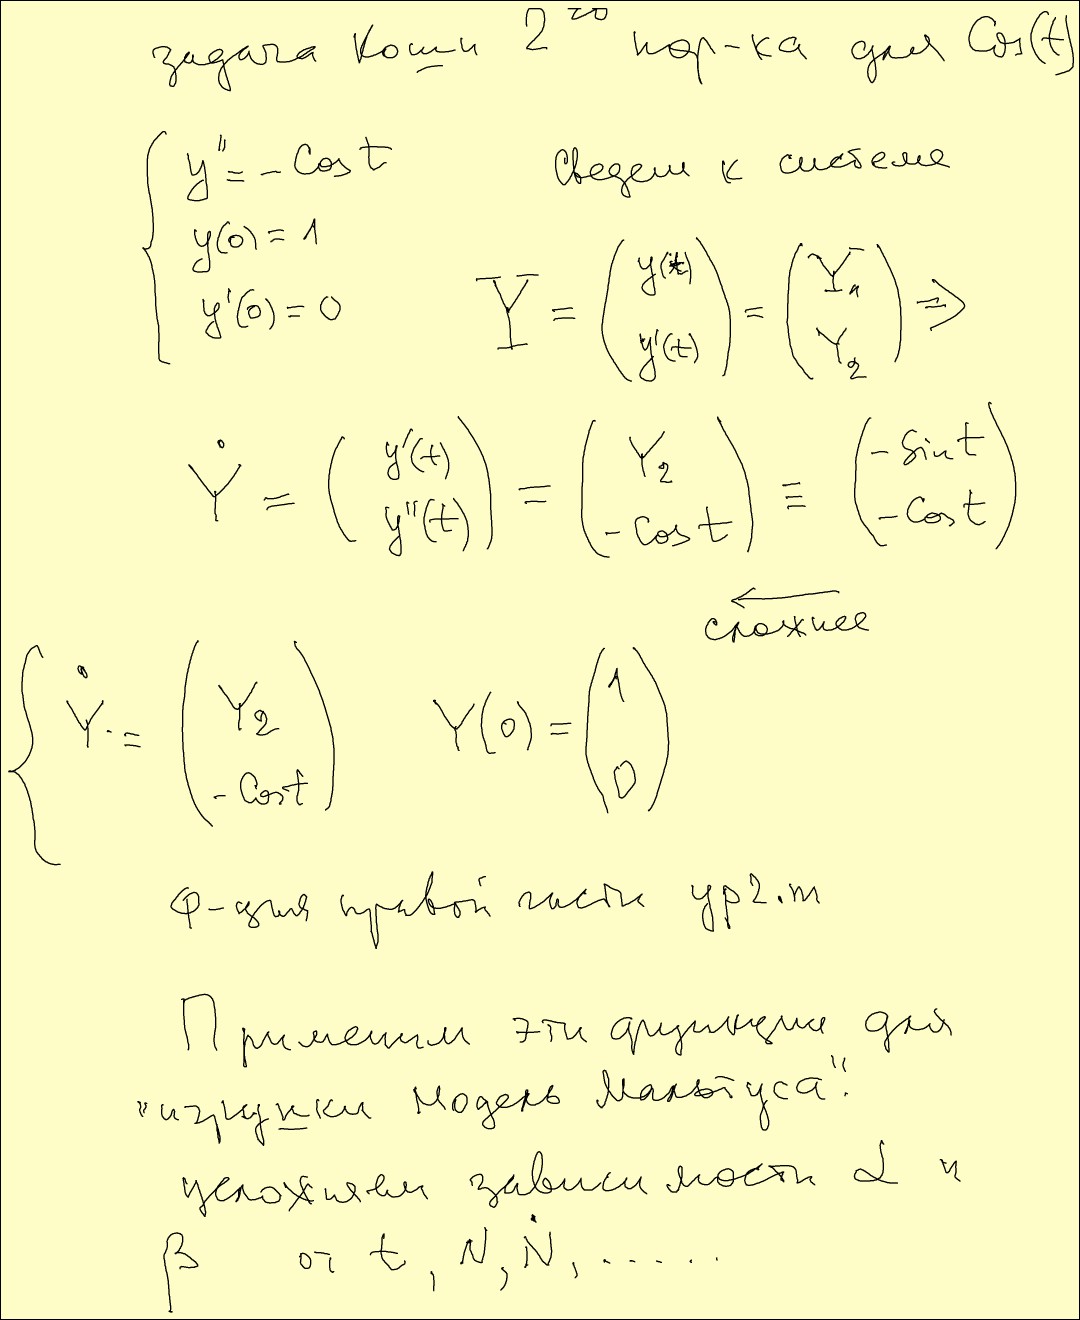 задача Коши 2го пор-ка для Cos(t)
y'' = - Cos t
Сведем к системе
y(0) = 1
y'(0) = 0
Y = ( y(t) y'(t) ) = ( Y₁ Y₂ ) ⇒
Ẏ = ( y'(t) y''(t) ) = ( Y₂ - Cos t ) ≡ ( - Sin t - Cos t )
←
сложнее
Ẏ = ( Y₂ - Cos t ) Y(0) = ( 1 0 )
Ф-ция правой части yp2.m
Применим эти функции для
"игрушки Модель Мальтуса".
усложняем зависимости α и
β от t, N, Ṅ, .....